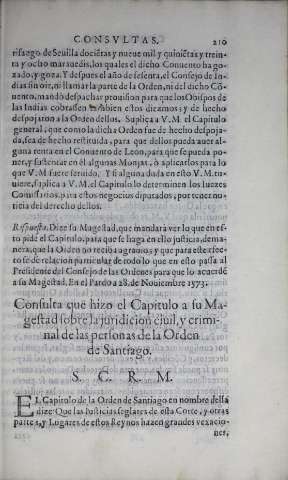 CONSVLTAS. 210
rifazgo de Seuilla dociẽtas y nueue mil y quiniẽtas y trein-
ta y ocho marauedis, los quales el dicho Conuento ha go-
zado, y goza. Y despues el año de sesenta, el Consejo de In-
dias sin oir, ni llamar la parte de la Orden, ni del dicho Cõ-
uento, mandò despachar prouision para que los Obispos de
las Indias cobrassen tambien estos diezmos: y de hecho
despojaron a la Orden dellos. Suplica a V. M. el Capitulo
general, que como la dicha Orden fue de hecho despoja-
da, sea de hecho restituida, para que dellos pueda auer al-
guna renta en el Conuento de Leon, para que se pueda po-
ner, y sustentar en èl algunas Monjas, ò aplicarlos para lo
que V. M. fuere seruido. Y si alguna duda en esto V. M. tu-
uiere, suplica a V. M. el Capitulo lo determinen los Iuezes
Comissarios, para estos negocios diputados, por tener no-
ticia del derecho dellos.
Respuesta. Dize su Magestad, que mandarà ver lo que en es-
to pide el Capitulo, para que se haga en ello justicia, de ma-
nera, que la Orden no reciba agrauios; y que para este efec-
to se dè relacion particular de todo lo que en esto passa al
Presidente del Consejo de las Ordenes para que lo acuerde
a su Magestad. En el Pardo a 28. de Nouiembre 1573.
Consulta que hizo el Capitulo a su Ma-
gestad sobre la juridicion ciuil, y crimi-
nal de las personas de la Orden
de Santiago.
S. C. R. M.
EL Capitulo de la Orden de Santiago en nombre della
dize: Que las Iusticias seglares de esta Corte, y otras
partes, y Lugares de estos Reynos hazen grandes vexacio-
nes,